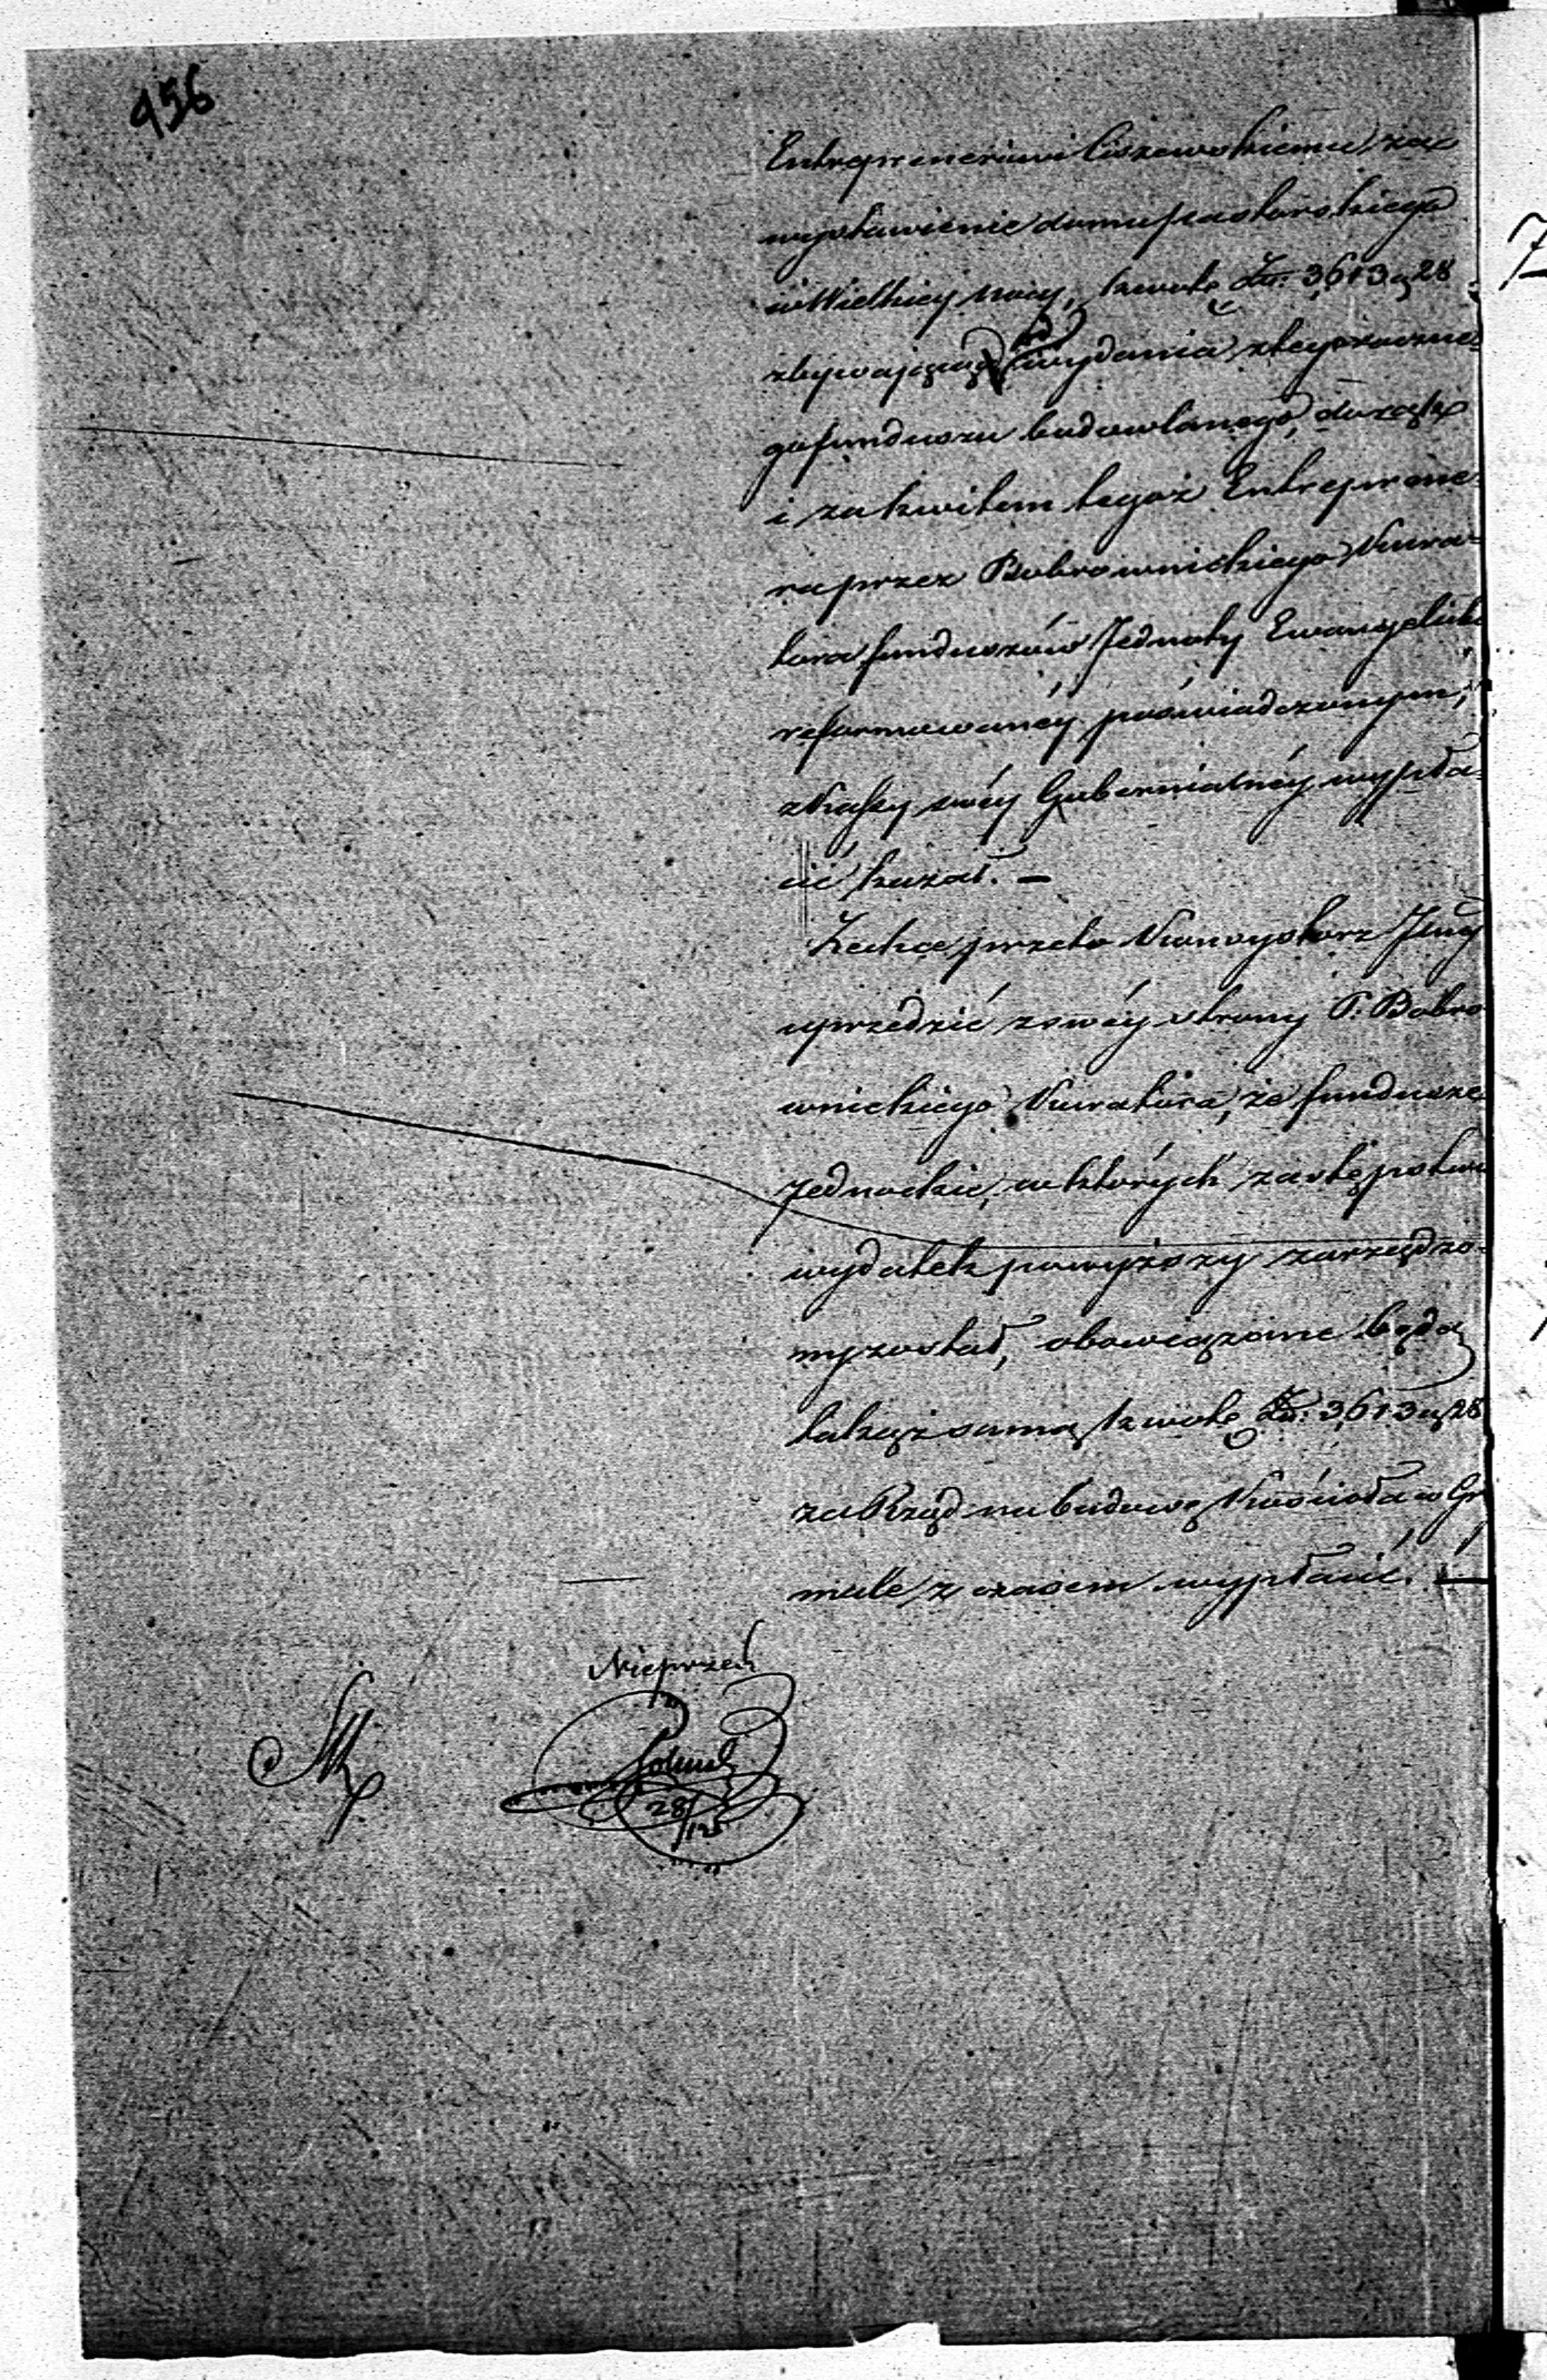 456
Entreprenerowi Ciszewskiemu za
wystawienie domu pastorskiego
w Wielkiey nocy, kwotę Złr: 3,613 g 28
zbywającą od wydania z tegorocznego
go funduszu budowlanego, do rąk
i za kwitem tegoż Entreprene-
ra przez Bobrownickiego Kura-
tora funduszów Jednoty Ewangelicko
reformowanéy poświadczonym,
z Kassy swéy Gubernialnéy wypła-
cić kazał. —
Zechce przeto Konsystorz Jlny
uprzedzić z swéy strony P. Bobro
wnickiego Kuratora, że fundusze
Jednockie, w których zastępstwie
wydatek powyższy zarządzo-
ny został, obowiązane będą
takąż samą kwotę Złr: 3,613 g 28
za Rząd na budowę Kościoła w Gr
male z czasem wypłacić. —
28/12